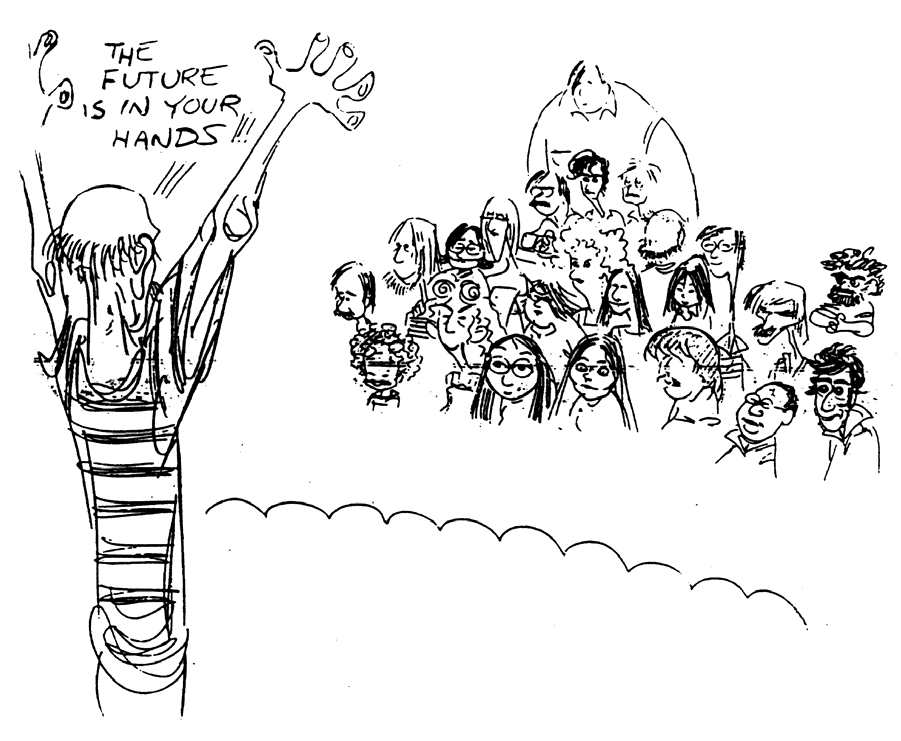 THE
FUTURE
IS IN YOUR
HANDS!!!